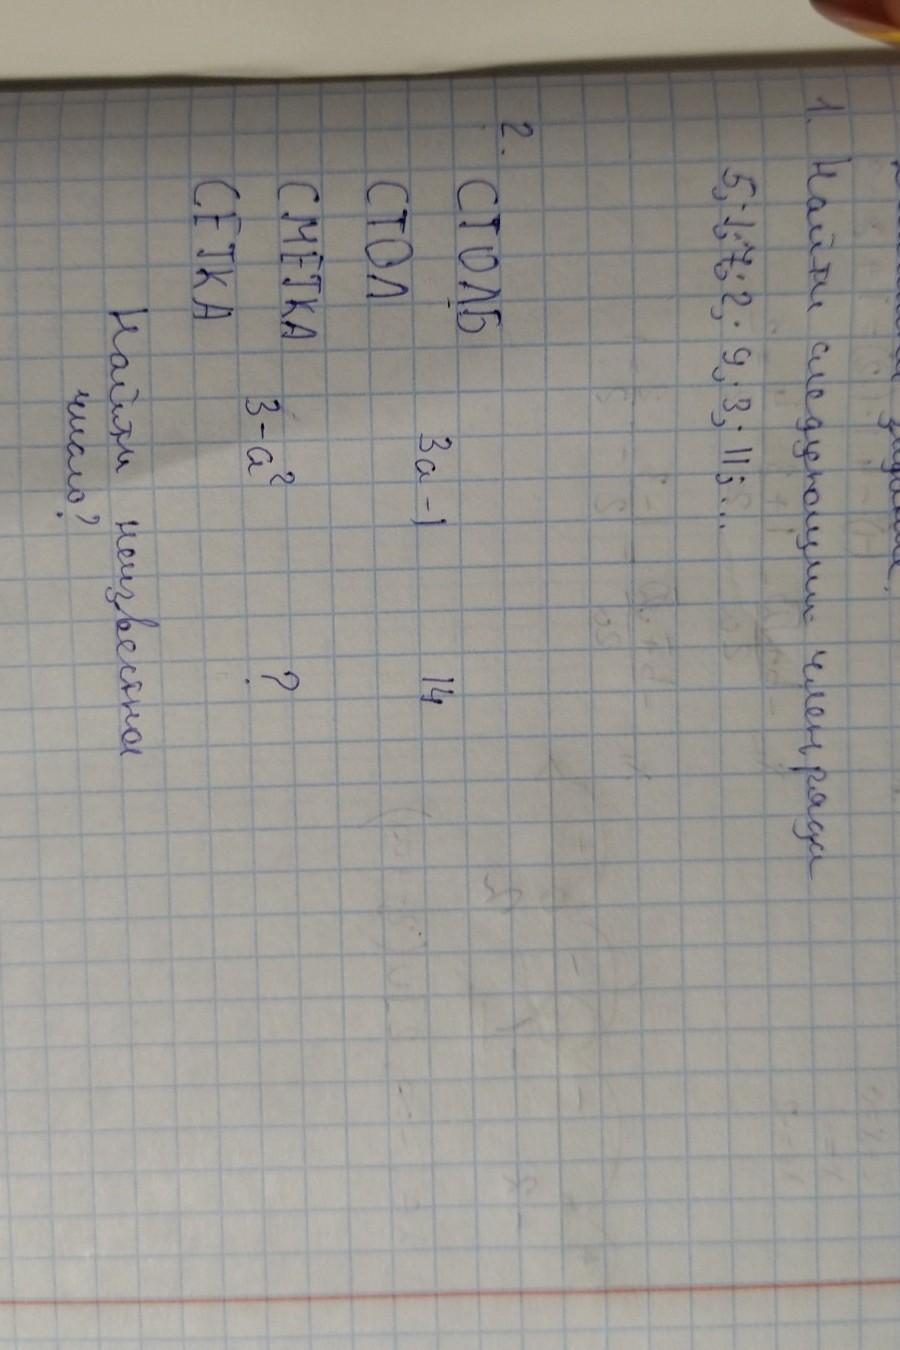 1. Найти следующий член ряда
5; 1; 7; 2; 9; 3; 11; ...
2. СТОЛБ
3а - 1 14
СТОЛ
СМЕТКА
3 - а² ?
СЕТКА
Найти неизвестное
число?